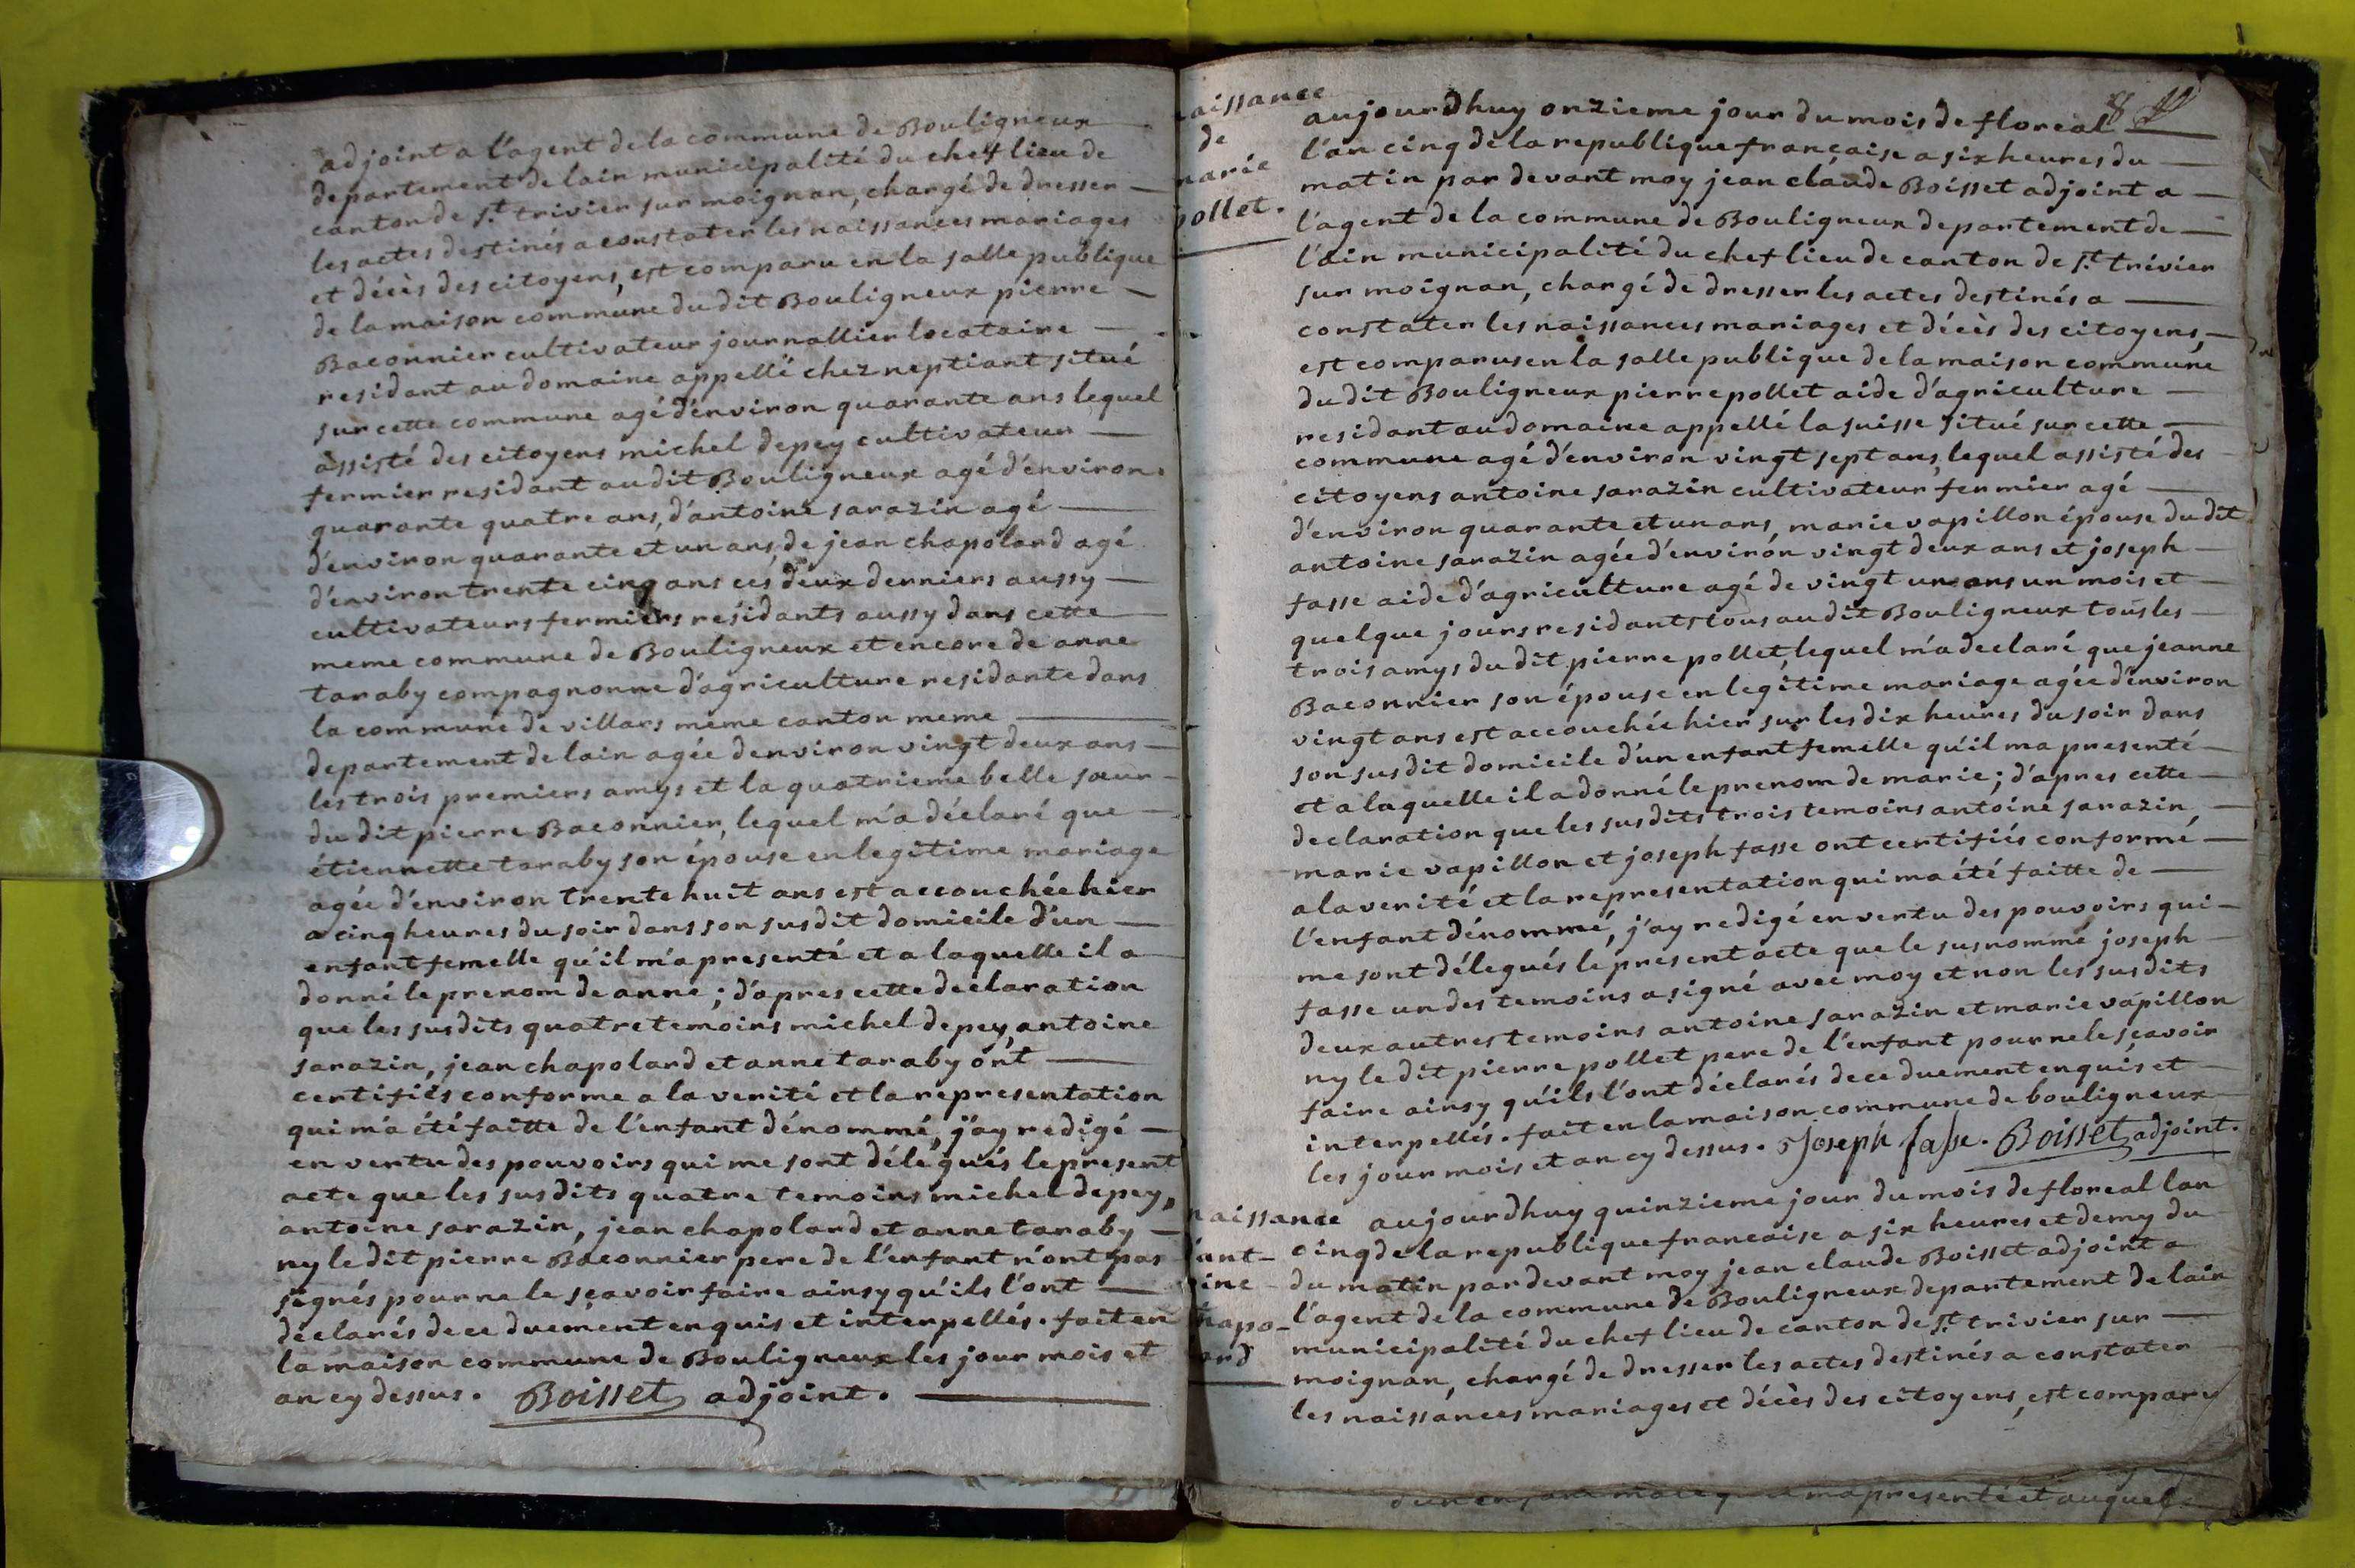 adjoint a l'agent de la commune de Bouligneux
departement de lain municipalité du chef lieu de
canton de st trivier sur moignan, chargé de dresser
les actes destinés a constater les naissances mariages
et décès des citoyens, est comparu en la salle publique
de la maison commune du dit Bouligneux pierre
Baconnier cultivateur journallier locataire
residant au domaine appellé chez neptiant situé
sur cette commune agé d'environ quarante ans lequel
assisté des citoyens michel depey cultivateur
fermier residant au dit Bouligneux agé d'environ
quarante quatre ans, d'antoine sarazin agé
d'environ quarante et un ans, de jean chapolard agé
d'environ trente cinq ans ces deux derniers aussy
cultivateurs fermiers résidants aussy dans cette
meme commune de Bouligneux et encore de anne
taraby compagnonne d'agriculture residante dans
la commune de villars même canton meme
departement de lain agée denviron vingt deux ans
les trois premiers amys et la quatrieme belle sœur
du dit pierre Baconnier, lequel m'a déclaré que
étiennette taraby son épouse en legitime mariage
agée d'environ trente huit ans est accouchée hier
a cinq heures du soir dans son susdit domicile d'un
enfant femelle qu'il m'a presenté et a laquelle il a
donné le prenom de anne ; d'apres cette declaration
que les susdits quatre temoins michel depey, antoine
sarazin, jean chapolard et anne taraby ont
certifiés conforme a la verité et la representation
qui m'a été faitte de l'enfant dénommé, j'ay redigé
en vertu des pouvoirs qui me sont délégués le present
acte que les susdits quatre temoins michel depey,
antoine sarazin, jean chapolard et anne taraby
ny le dit pierre Baconnier pere de l'enfant n'ont pas
signés pour ne le sçavoir faire ainsy qu'ils l'ont
declarés de ce duement enquis et interpellés. fait en
la maison commune de Bouligneux les jour mois et
an cy dessus. Boisset adjoint.
naissance
de
marie
pollet.
8
aujourdhuy onzieme jour du mois de floreal
l'an cinq de la republique française a six heures du
matin par devant moy jean claude Boisset adjoint a
l'agent de la commune de Bouligneux departement de
l'ain municipalité du chef lieu de canton de st trivier
sur moignan, chargé de dresser les actes destinés a
constater les naissances mariages et décès des citoyens,
est comparus en la salle publique de la maison commune
du dit Bouligneux pierre pollet aide d'agriculture
residant au domaine appellé la suisse situé sur cette
commune agé d'environ vingt sept ans, lequel assisté des
citoyens antoine sarazin cultivateur fermier agé
d'environ quarante et un ans, marie vapillon épouse du dit
antoine sarazin agée d'environ vingt deux ans et joseph
fasse aide d'agriculture agé de vingt un ans un mois et
quelque jours residants tous au dit Bouligneux tous les
trois amys du dit pierre pollet, lequel m'a declaré que jeanne
Baconnier son épouse en legitime mariage agée d'environ
vingt ans est accouchée hier sur les dix heures du soir dans
son susdit domicile d'un enfant femelle qu'il ma presenté
et a laquelle il a donné le prenom de marie ; d'apres cette
declaration que les susdits trois temoins antoine sarazin
marie vapillon et joseph fasse ont certifiés conforme
a la verité et la representation qui ma été faitte de
l'enfant dénommé, j'ay redigé en vertu des pouvoirs qui
me sont délegués le present acte que le susnommé joseph
fasse un des temoins a signé avec moy et non les susdits
deux autres temoins antoine sarazin et marie vapillon
ny le dit pierre pollet pere de l'enfant pour ne le sçavoir
faire ainsy qu'ils l'ont déclarés de ce duement enquis et
interpellés. fait en la maison commune de bouligneux
les jour mois et an cy dessus. Joseph fasse. Boisset adjoint.
naissance
d'ant-
oine
chapo-
lard
aujourdhuy quinzieme jour du mois de floreal lan
cinq de la republique francaise a six heures et demy du
du matin pardevant moy jean claude Boisset adjoint a
l'agent de la commune de Bouligneux departement de lain
municipalité du chef lieu de canton de st trivier sur
moignan, chargé de dresser les actes destinés a constater
les naissances mariages et décès des citoyens, est comparu
d'un enfant male ma presenté et auquel